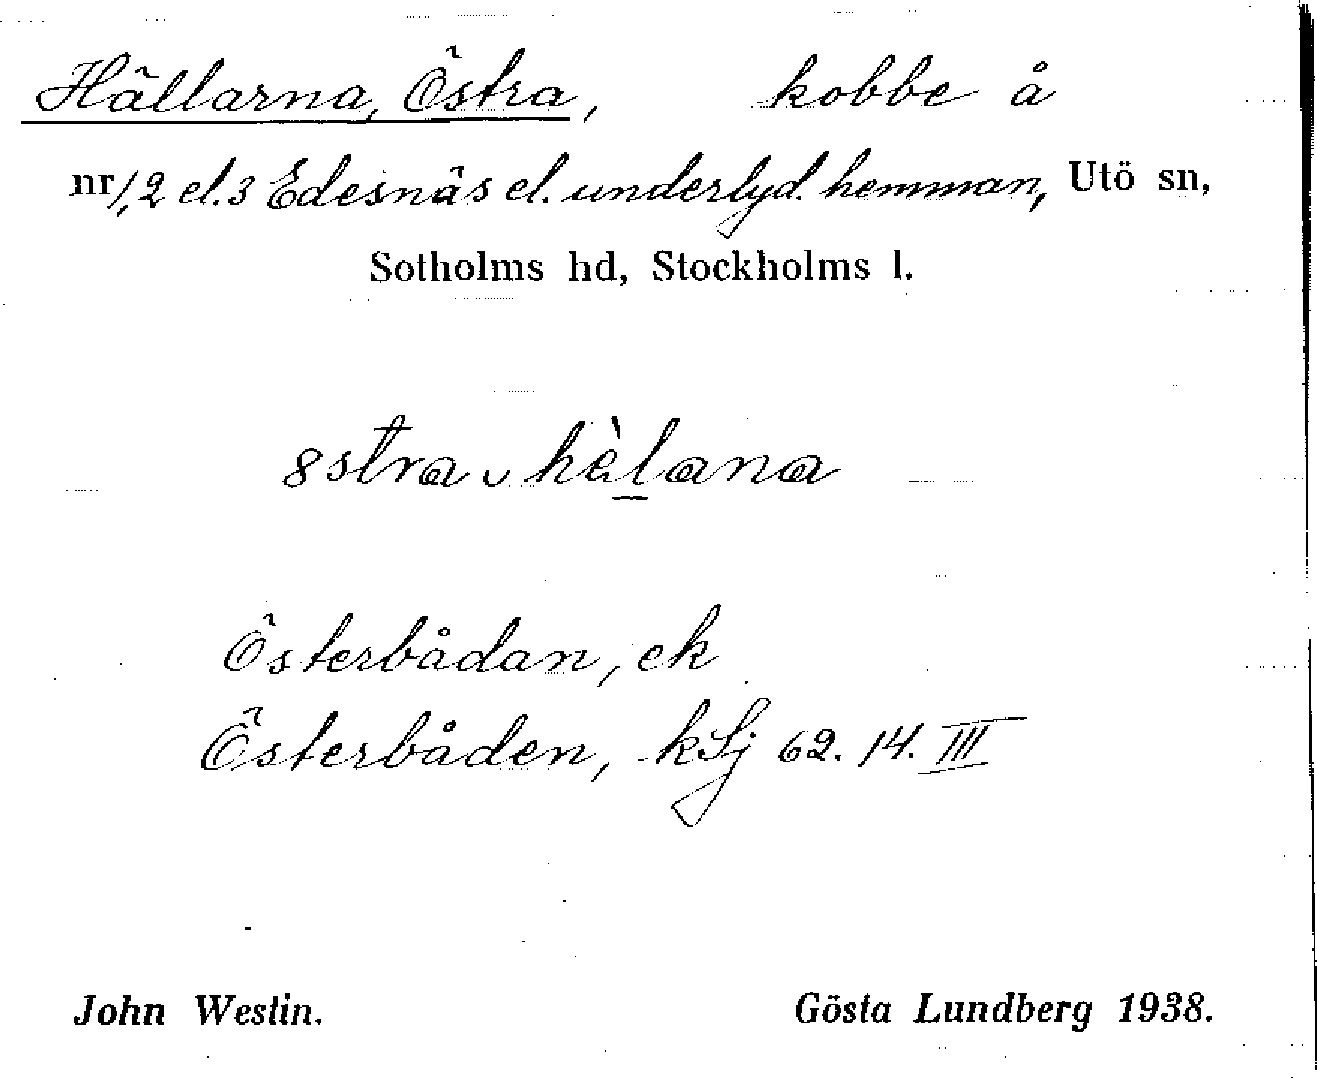 Hällarna, Östra, kobbe å
nr 1, 2 el. 3 Edesnäs el. underlyd. hemman, Utö sn,
Sotholms hd, Stockholms l.
östra ᴗ hèl̲ana
Österbådan, ek
Österbåden, kSj 62. 14. III
John Westin. Gösta Lundberg 1938.